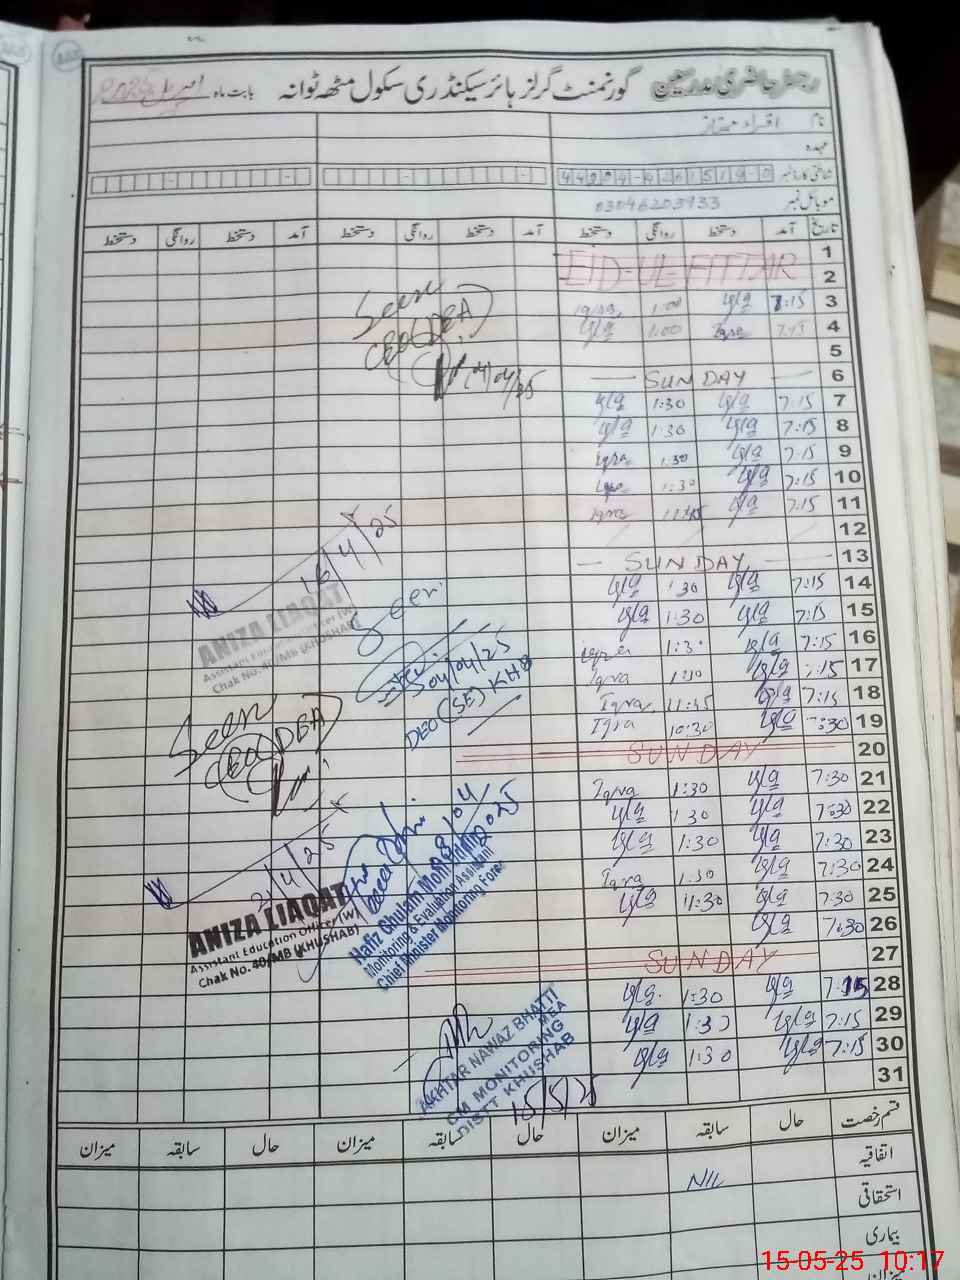 رجسٹر حاضری مدرسین گورنمنٹ گرلز ہائر سیکنڈری سکول مٹھہ ٹوانہ بابت ماہ اپریل 2025
نام اقراء ممتاز
عہدہ
شناختی کارڈ نمبر
موبائل نمبر 03046203933
تاریخ آمد دستخط روانگی دستخط آمد دستخط روانگی دستخط آمد دستخط روانگی دستخط
1
EID-UL-FITTAR
2
3 7:15 اقراء 1:00 Iqra
4 7:15 Iqra 1:00 اقراء
5
6 SUNDAY
7 7:15 اقراء 1:30 اقراء
8 7:15 اقراء 1:30 اقراء
9 7:15 اقراء 1:30 Iqra
10 7:15 اقراء 1:30 Iqra
11 7:15 اقراء 11:45 Iqra
12
13 SUNDAY
14 7:15 اقراء 1:30 اقراء
15 7:15 اقراء 1:30 اقراء
16 7:15 اقراء 1:30 Iqra
17 7:15 اقراء 1:30 Iqra
18 7:15 اقراء 11:45 Iqra
19 7:30 اقراء 10:30 Iqra
20 SUNDAY
21 7:30 اقراء 1:30 Iqra
22 7:30 اقراء 1 30 اقراء
23 7:30 اقراء 1:30 اقراء
24 7:30 اقراء 1:30 Iqra
25 7:30 اقراء 11:30 اقراء
26 7:30 اقراء
27 SUNDAY
28 7:15 اقراء 1:30 اقراء
29 7:15 اقراء 1:30 اقراء
30 7:15 اقراء 1:30 اقراء
31
Seen
CEO (DEA)
04/04/25
16/4/25
ANIZA LIAQAT
Assistant Education Officer (W)
Chak No. 40/MB (KHUSHAB)
Seen
04/04/25
DEO (SE) KHB
Seen
CEO (DEA)
21/4/25
ANIZA LIAQAT
Assistant Education Officer (W)
Chak No. 40/MB (KHUSHAB)
Hafiz Ghulam
Monitoring & Evaluation Assistant
Chief Minister Monitoring Force
AKHTAR NAWAZ BHATTI
MEA
CM MONITORING
DISTT KHUSHAB
15/5/25
قسم رخصت حال سابقہ میزان حال سابقہ میزان حال سابقہ میزان
اتفاقیہ
NIL
استحقاقی
بیماری
میزان
15-05-25 10:17